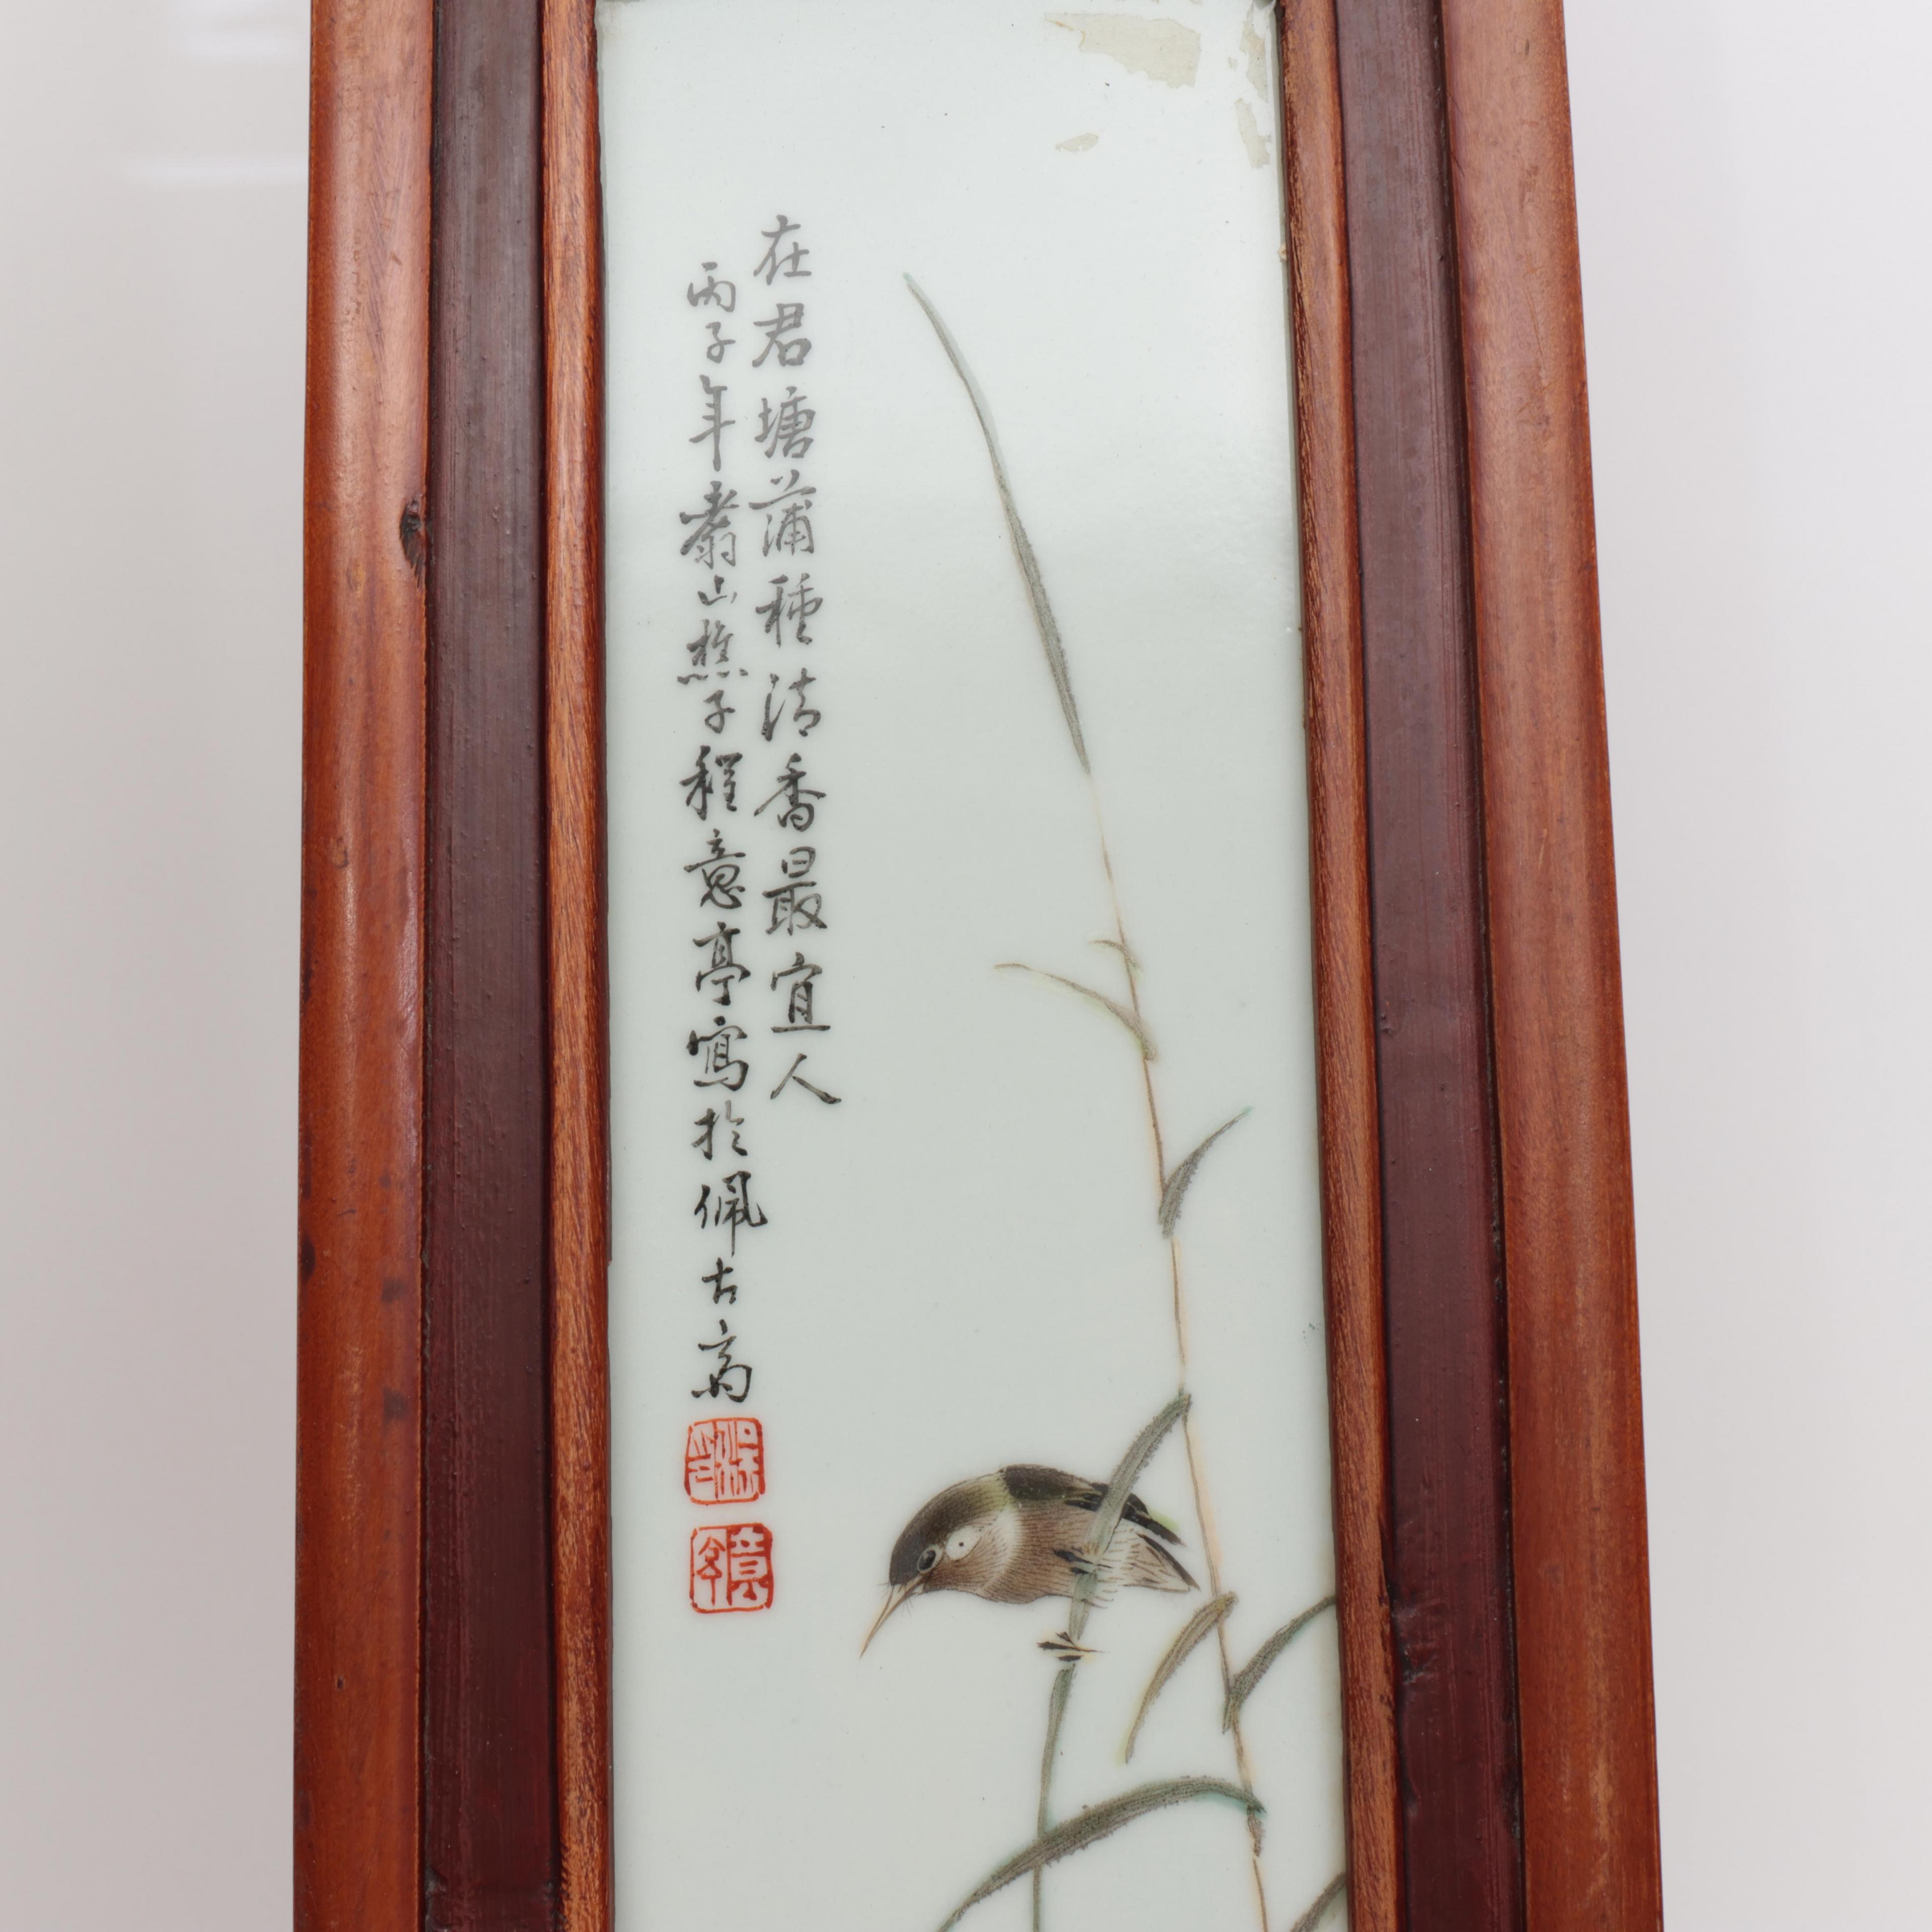 在君塘蒲種清香最宜人
丙子年翥山樵子程意亭寫於佩古齋